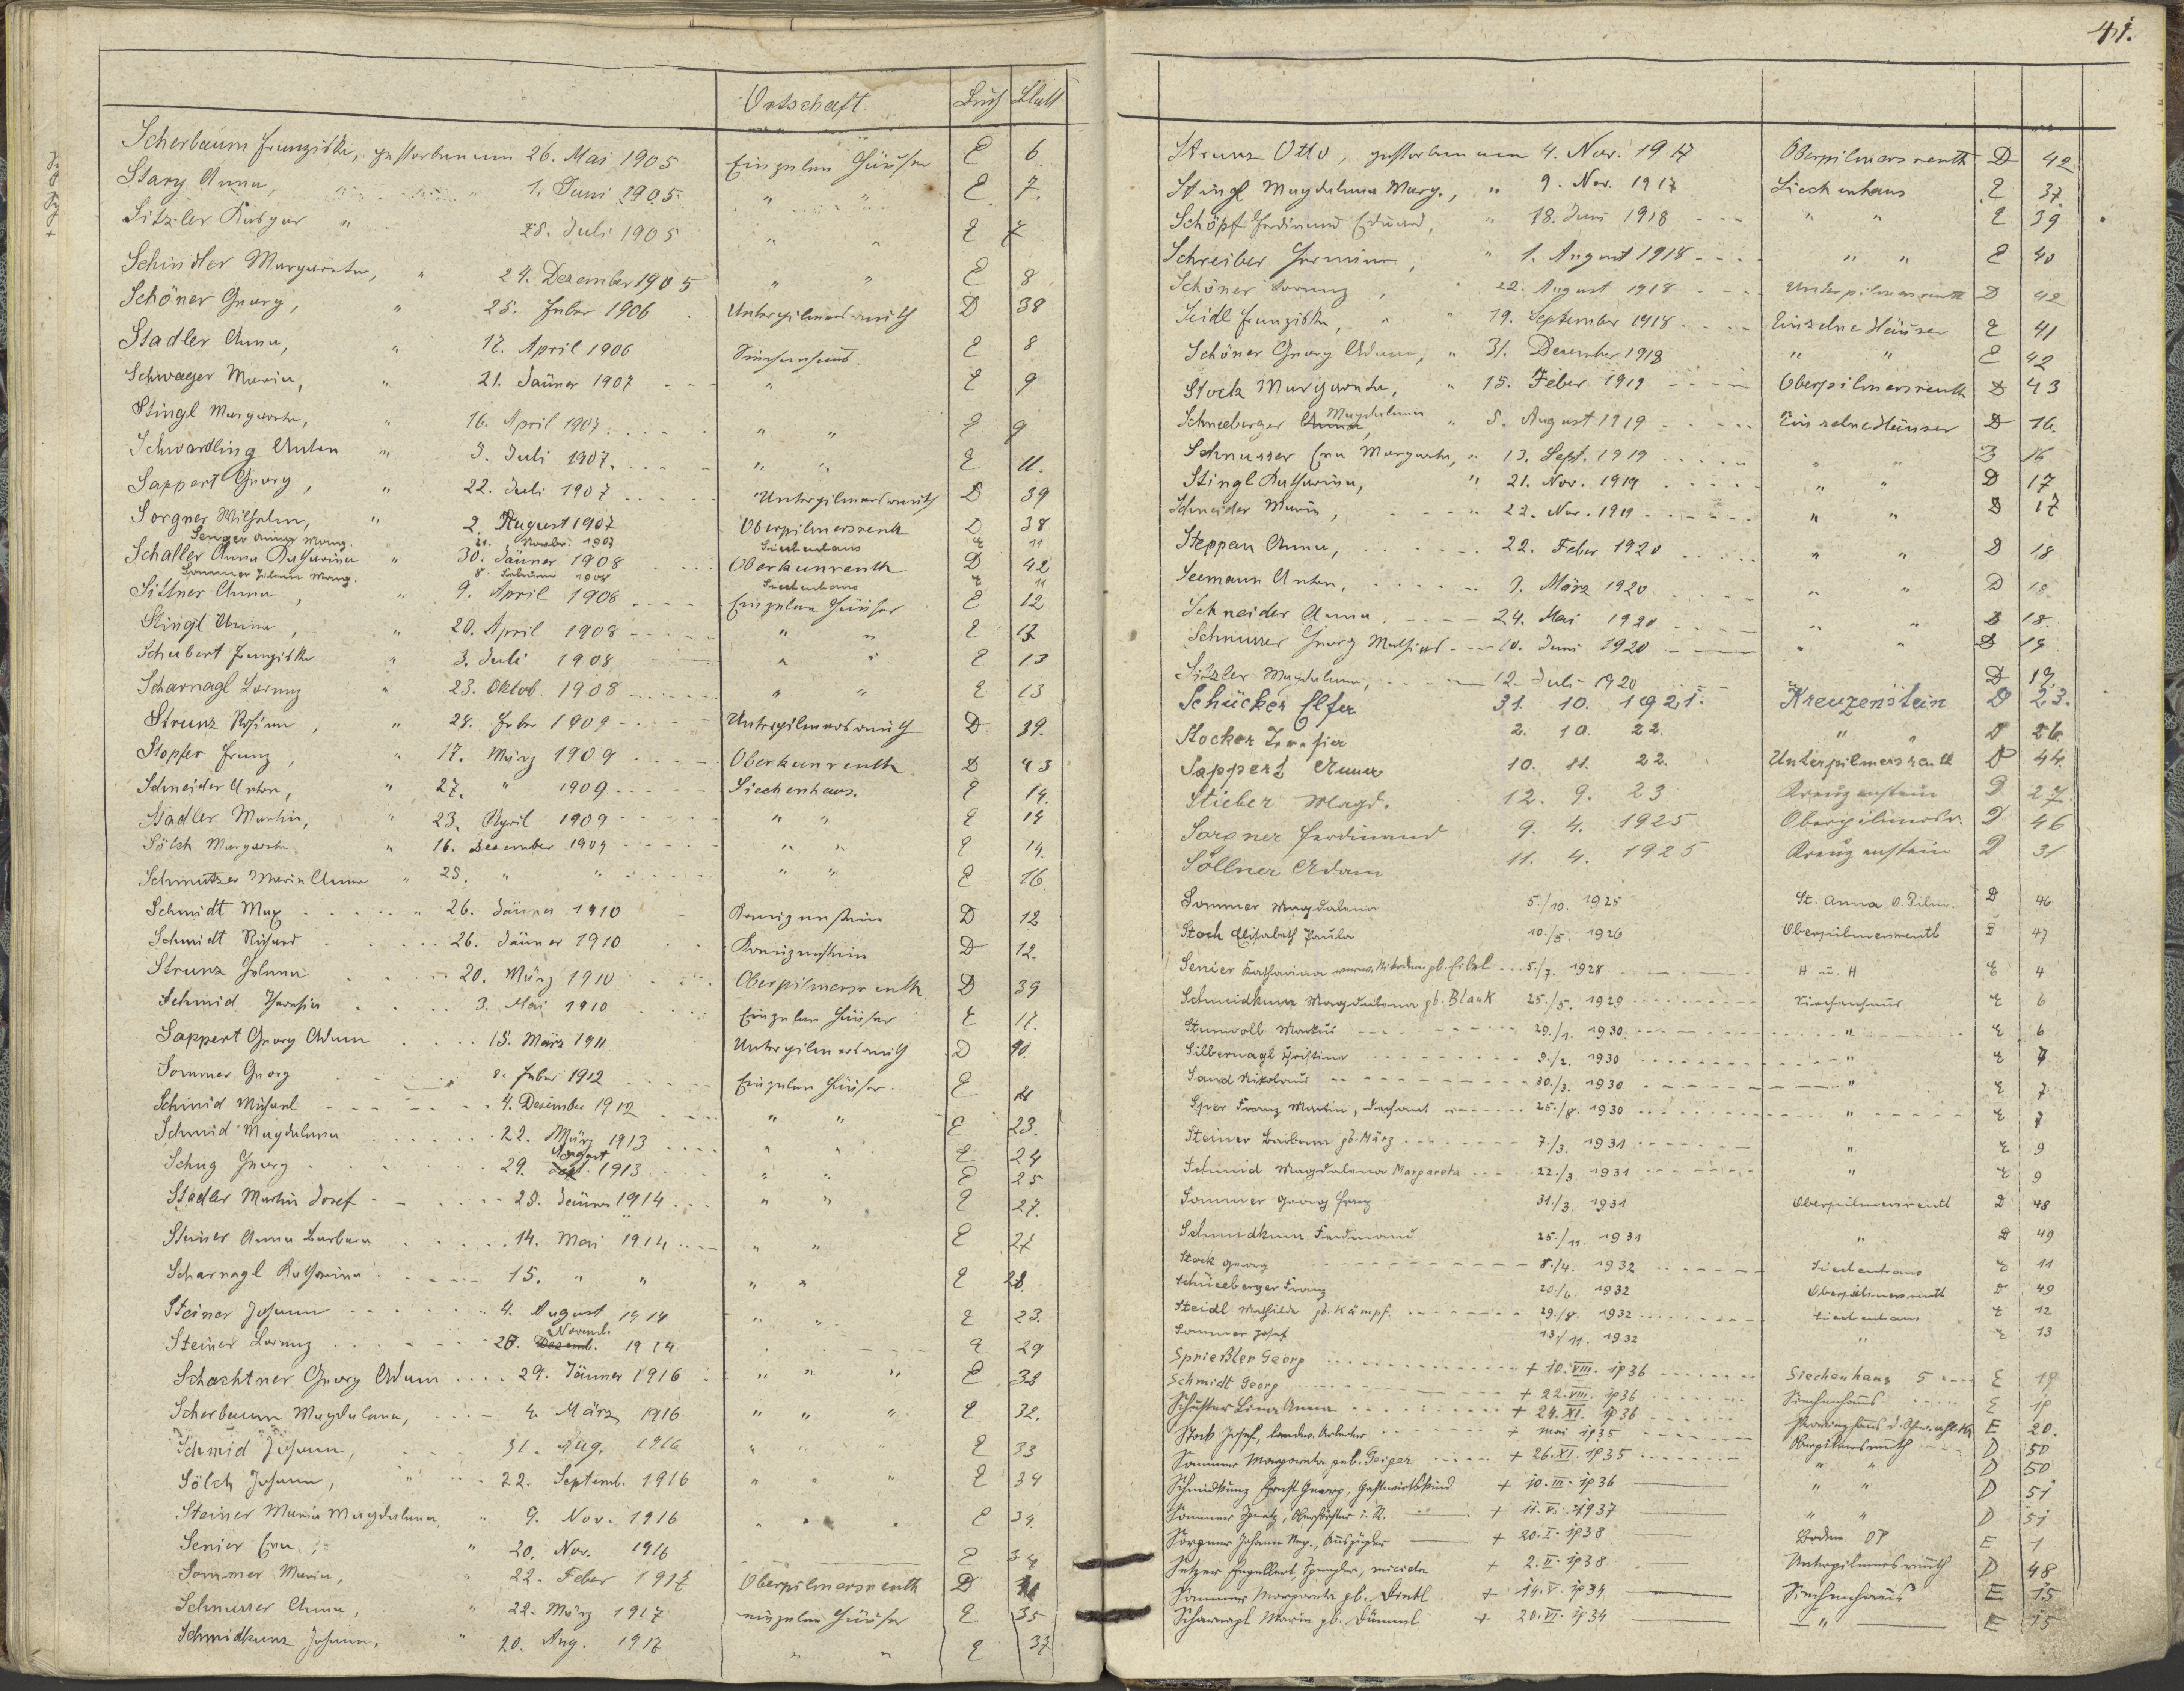 Ortschaft Buch Blatt
Scherbaum Franziska, gestorben am 26. Mai 1905 Einzelne Häuser E 6.
Stary Anna, 1. Juni 1905 " " E. 7.
Sitzler Kaspar " 28. Juli 1905 " " E 7
Schindler Margareta, " 24. Dezember 1905 " " E 8
Schöner Georg, " 25. Feber 1906 Unterpilmersreuth D 38
Stadler Anna, " 17. April 1906 Siechenhaus E 8
Schwager Maria, " 21. Jänner 1907 " E 9
Stingl Margareta, " 16. April 1907 " " E 9
Schwardling Anton " 3. Juli 1907. " " E 11.
Sappert Georg, " 22. Juli 1907 Unterpilmersreuth D 39
Sorgner Wilhelm, " 2. August 1907 Oberpilmersreuth D 38
Senger Anna Marg. 21. Novbr. 1907 Siechenhaus E 11
Schaller Anna Katharina " 30. Jänner 1908 Oberkunreuth D 42
Sommer Johann Marg. 8. Februar 1908 Siechenhaus E 11
Sittner Anna, " 9. April 1908 Einzelne Häuser E 12
Stingl Anna, " 20. April 1908 " " E 13
Schubert Franziska " 3. Juli 1908 " " E 13
Scharnagl Lorenz " 23. Oktob. 1908 " " E 13
Strunz Rosina, " 28. Feber 1909 Unterpilmersreuth D 39.
Stopfer Franz, " 17. März 1909 Oberkunreuth D 43
Schneider Anton, " 27. " 1909 Siechenhaus. E 14.
Stadler Martin, " 23. April 1909 " " E 14
Sölch Margareta " 16. Dezember 1909 " " E 14.
Schmutzer Maria Anna " 23. " " " " E 16.
Schmidt Max " 26. Jänner 1910 Kreuzenstein D 12
Schmidt Richard 26. Jänner 1910 Kreuzenstein D 12.
Strunz Johann 20. März 1910 Oberpilmersreuth D 39
Schmid Theresia 3. Mai 1910 Einzelne Häuser E 17.
Sappert Georg Adam 15. März 1911 Unterpilmersreuth D 40.
Sommer Georg 8. Feber 1912 Einzelne Häuser. E
Schmid Michael 4. Dezember 1912 " " E 23.
Schmid Magdalena 22. März 1913 " " E 24
Schug Georg 29. August 1913 " " E 25
Stadler Martin Josef 23. Jänner 1914 " " E 27.
Steiner Anna Barbara 14. Mai 1914 " " E 27
Scharnagl Katharina 15. " " " " E 28.
Steiner Johann 4. August 1914 " " E 23.
Steiner Lorenz 28. Novemb. 1914 E 29
Schachtner Georg Adam 29. Jänner 1916 " " " E 32
Scherbaum Magdalena, 4. März 1916 " " " E 32.
Schmid Johann, 31. Aug. 1916 " " " E 33
Sölch Johann, " 22. Septemb. 1916 " " " E 34
Steiner Maria Magdalena " 9. Nov. 1916 " " " E 34.
Senier Eva, " 20. Nov. 1916 E 34
Sommer Maria, " 22. Feber 1917 Oberpilmersreuth D 41
Schnurrer Anna, " 22. März 1917 einzelne Häuser E 35
Schmidkunz Johann, " 20. Aug. 1917 " " E 37
41.
Strunz Otto, gestorben am 4. Nov. 1917 Oberpilmersreuth D 42
Stingl Magdalena Marg., " 9. Nov. 1917 Siechenhaus E 37.
Schöpf Ferdinand Eduard, " 18. Juni 1918 " " E 39
Schreiber Hermine, " 1. August 1918 " " E 40
Schöner Lorenz, " 22. August 1918 Unterpilmersreuth D 42
Seidl Franziska, " " 19. September 1918 Einzelne Häuser E 41
Schöner Georg Adam, " 31. Dezember 1918 " " E 42
Stock Margareta, " 15. Feber 1919 Oberpilmersreuth D 43
Schneeberger Magdalena " 5. August 1919 Einzelne Häuser D 16.
Schnurrer Eva Margareta, " 13. Sept. 1919 " " D 16
Stingl Katharina, " 21. Nov. 1919 " " D 17
Schneider Maria, " 22. Nov. 1919 " " D 17
Steppan Anna, 22. Feber 1920 " " D 18
Seemann Anton, 9. März 1920 " " D 18.
Schneider Anna 24. Mai 1920 " " D 18.
Schnurrer Georg Mathias 10. Juni 1920 " " D 19
Sitzler Magdalena, 12. Juli 1920 D 19.
Schücker Elfa 31. 10. 1921. Kreuzenstein D 23.
Stocker Theresia 2. 10. 22. " " D 26.
Sappert Anna 10. 11. 22. Unterpilmersreuth D 44.
Stieber Magd. 12. 9. 23 Kreuzenstein D 27.
Sorgner Ferdinand 9. 4. 1925 Oberpilmersr. D 46
Söllner Adam 11. 4. 1925 Kreuzenstein D 31
Sommer Magdalena 5./10. 1925 St. Anna O. Pilm. D 46
Stock Elisabeth Paula 10./5. 1926 Oberpilmersreuth D 47
Senier Katharina verw. Nikodem gb. Eibel 5./7. 1928 H u. H E 4
Schmidkunz Magdalena gb. Blank 25./5. 1929 Siechenhaus E 6
Stunvoll Markus 29./1. 1930 " E 6
Silbernagl Christina 9./2. 1930 " E 7
Sand Nikolaus 30./3. 1930 " E 7
Sper Franz Martin, Dechant 25./8. 1930 " E 7
Steiner Barbara gb. März 7./3. 1931 " E 9
Schmid Magdalena Margareta 22./3. 1931 " E 9
Sommer Georg Franz 31./3. 1931 Oberpilmersreuth D 48
Schmidkunz Ferdinand 25./11. 1931 " D 49
Stock Georg 8./4. 1932 Siechenhaus E 11
Schneeberger Franz 20./6 1932 Oberpilmersreuth D 49
Steidl Mathilde gb. Kämpf. 29./8. 1932 Siechenhaus E 12
Sommer Josef 13/11. 1932 " E 13
Sprießler Georg + 10. VIII. 1936 Siechenhaus 5 E 19
Schmidt Georg + 22. VIII. 1936 Siechenhaus E 19
Schuster Lina Anna + 24. XI. 1936 E 20.
Stock Josef, landw. Arbeiter + Mai 1935 Oberpilmersreuth D 50
Sommer Margareta geb. Geiger + 26. XI. 1935 " " D 50
Schmidkunz Ernst Georg, Gastwirtskind + 10. III. 1936 " " D 51
Sommer Ignatz, i. R. + 11. VI. 1937 " " D 51
Sorgner Johann Nep., Auszügler + 20. I. 1938 Boden E 1
Setzer Engelbert, Spengler, suicida + 2. II. 1938 Unterpilmersreuth D 48
Sommer Margareta gb. Dietl + 14. V. 1934 Siechenhaus E 15
Scharnagl Maria gb. Dümml + 20. VI. 1934 " E 15